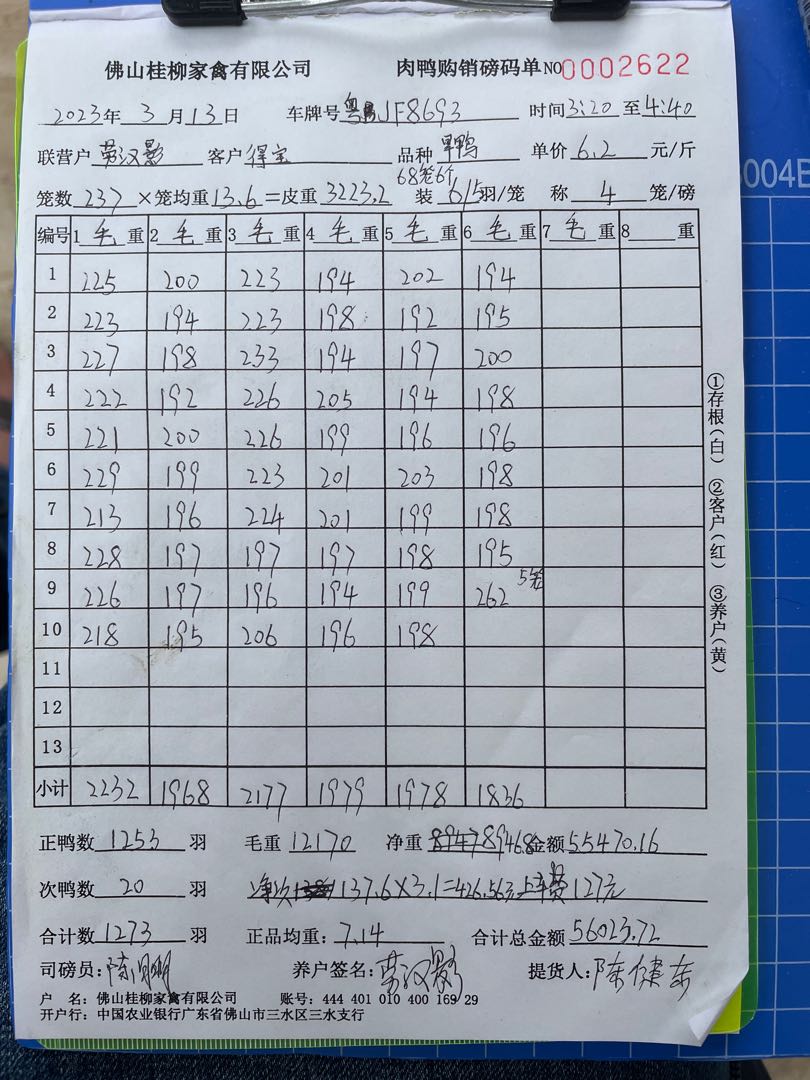 佛山桂柳家禽有限公司 肉鸭购销磅码单 NO 0002622
2023年 3月 13日 车牌号 粤JF8693 时间 3:20 至 4:40
联营户 劳汉影 客户 得宝 品种 旱鸭 单价 6.2 元/斤
68笼6个
笼数 237 ×笼均重 13.6 =皮重 3223.2 装 6/5 羽/笼 称 4 笼/磅
编号 1 毛 重 2 毛 重 3 毛 重 4 毛 重 5 毛 重 6 毛 重 7 毛 重 8 重
1 225 200 223 194 202 194
2 223 194 223 198 192 195
3 227 198 233 194 197 200
4 222 192 226 205 194 198
5 221 200 226 199 196 196
6 229 199 223 201 203 198
7 213 196 224 201 199 198
8 228 197 197 197 198 195
9 226 197 196 194 199 262 5笼
10 218 195 206 196 198
11
12
13
小计 2232 1968 2177 1979 1978 1836
正鸭数 1253 羽 毛重 12170 净重 8946.8 金额 55470.16
次鸭数 20 羽 净次 137.6×3.1=426.56元 上车费127元
合计数 1273 羽 正品均重: 7.14 合计总金额 56023.72
司磅员: 养户签名: 劳汉影 提货人: 陈健东
户 名: 佛山桂柳家禽有限公司 账号: 444 401 010 400 169 29
开户行: 中国农业银行广东省佛山市三水区三水支行
①存根(白) ②客户(红) ③养户(黄)
004B